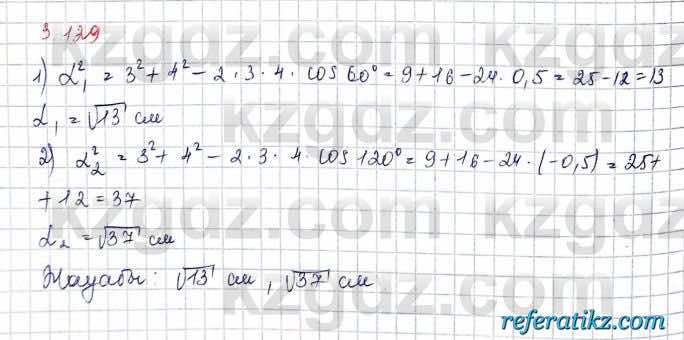 3.139
1) d₁² = 3² + 4² − 2 · 3 · 4 · cos 60° = 9 + 16 − 24 · 0,5 = 25 − 12 = 13
d₁ = √13 см
2) d₂² = 3² + 4² − 2 · 3 · 4 · cos 120° = 9 + 16 − 24 · (−0,5) = 25 +
+ 12 = 37
d₂ = √37 см
Жауабы: √13 см, √37 см
kzgdz.com
kzgdz.com
kzgdz.com
kzgdz.com
referatikz.com